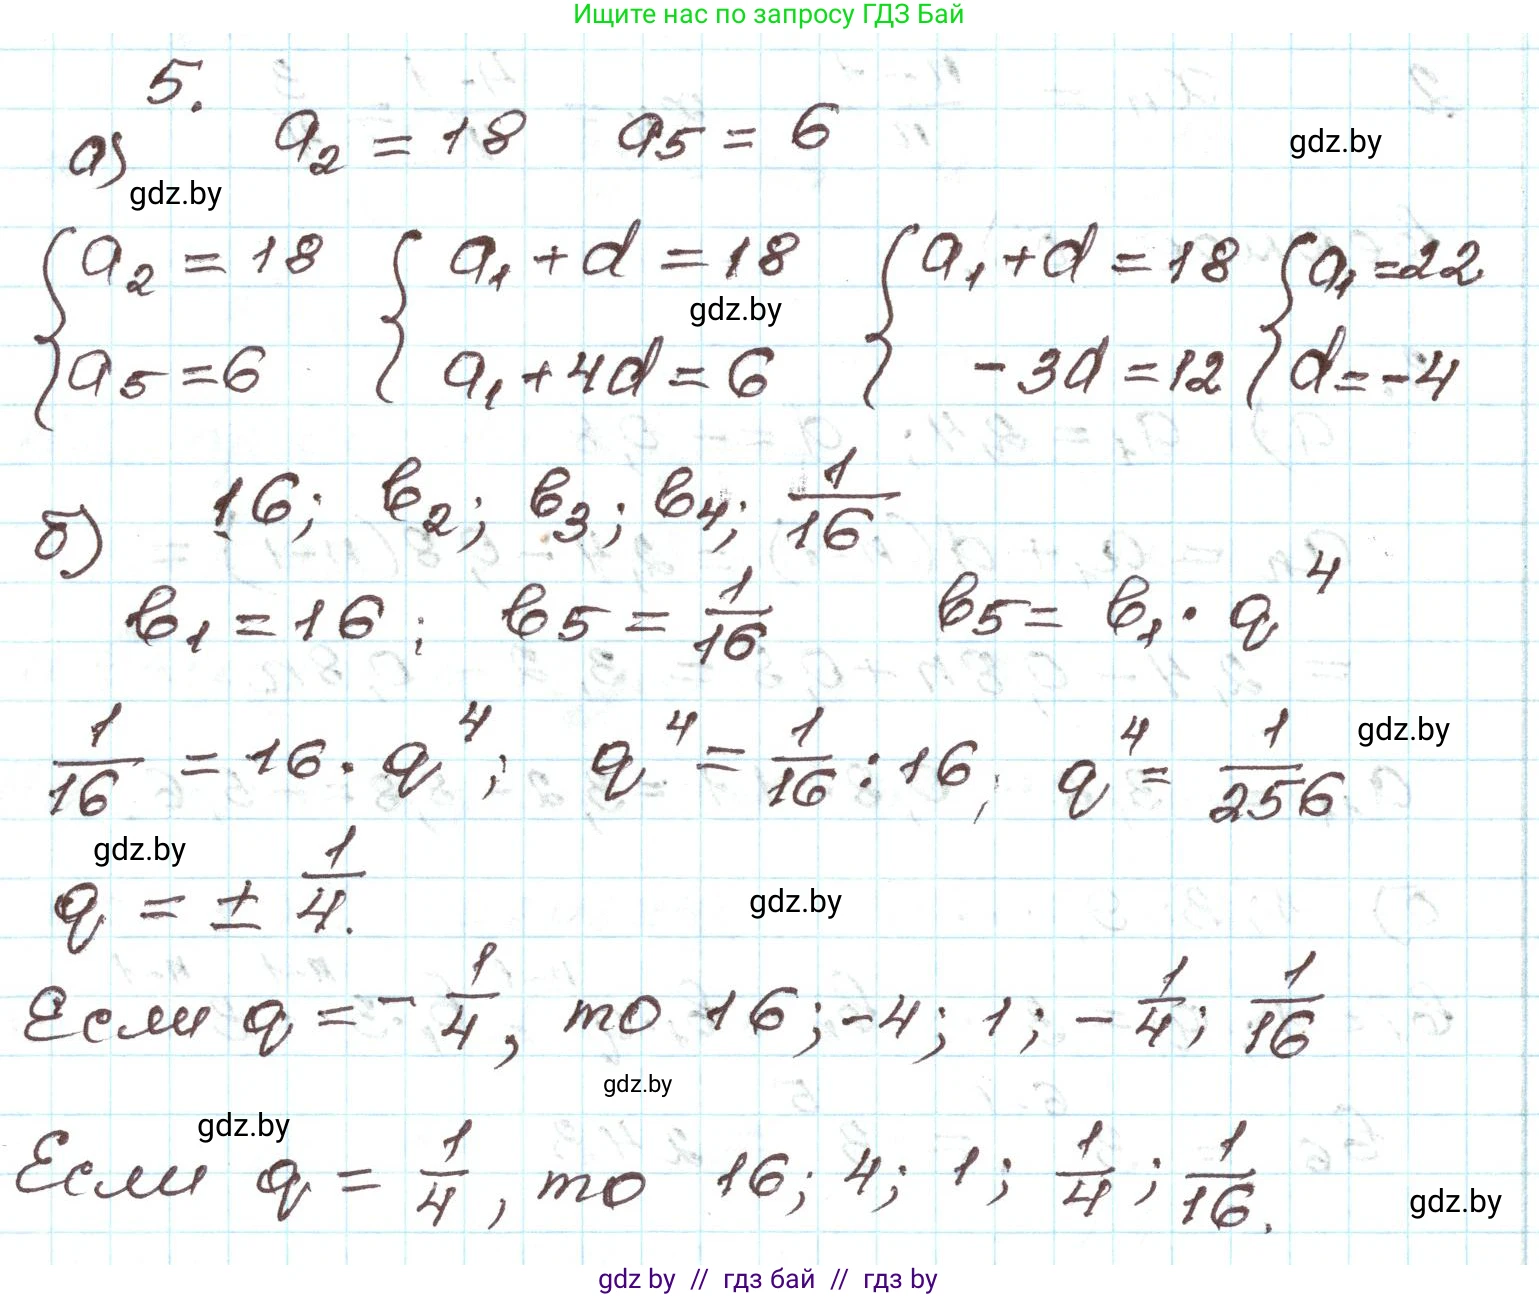 Ищите нас по запросу ГДЗ Бай
5.
а) a₂ = 18 a₅ = 6
gdz.by
gdz.by
{a₂ = 18 {a₁ + d = 18 {a₁ + d = 18 {a₁ = 22
gdz.by
a₅ = 6 a₁ + 4d = 6 - 3d = 12 d = -4
б) 16; b₂; b₃; b₄; 1/16
b₁ = 16; b₅ = 1/16 b₅ = b₁ · q⁴
1/16 = 16 · q⁴; q⁴ = 1/16 : 16; q⁴ = 1/256
gdz.by
gdz.by
q = ± 1/4.
gdz.by
Если q = - 1/4, то 16; -4; 1; - 1/4; 1/16
gdz.by
gdz.by
Если q = 1/4, то 16; 4; 1; 1/4; 1/16.
gdz.by
gdz by // гдз бай // гдз by